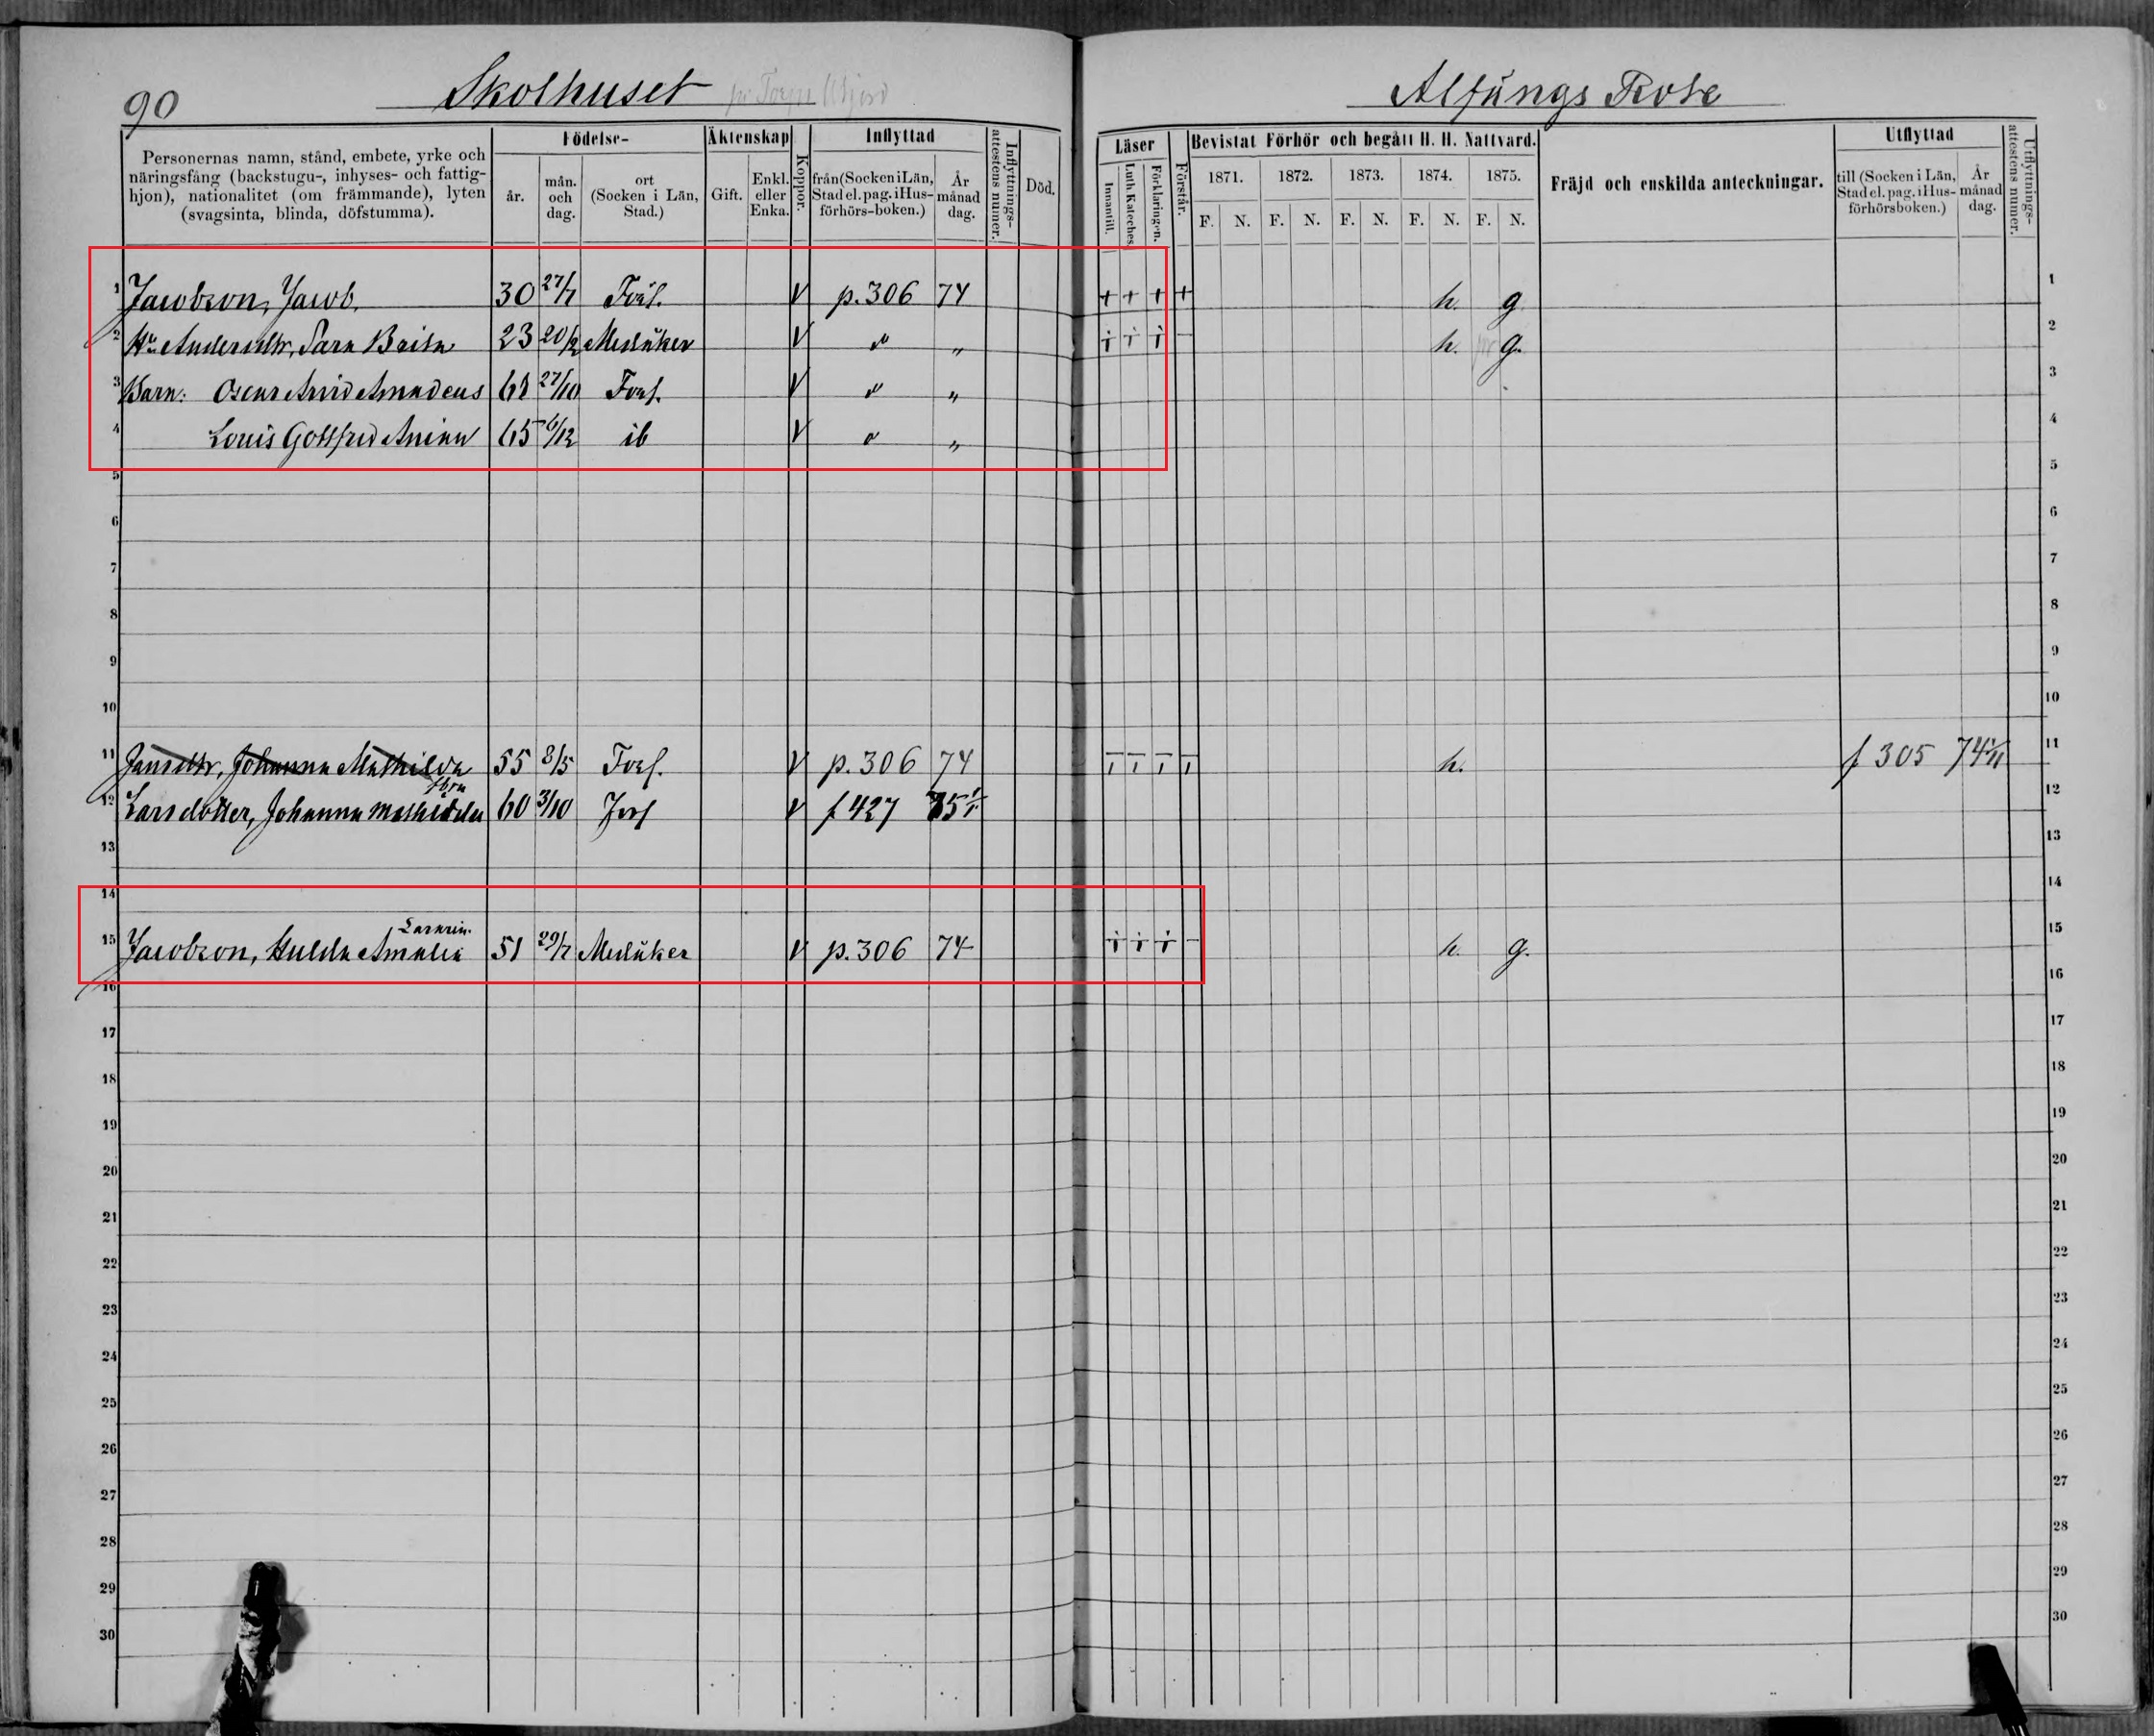 90
Skolhuset
Alfungs Rote
Personernas namn, stånd, embete, yrke och
näringsfång (backstugu-, inhyses- och fattig-
hjon), nationalitet (om främmande), lyten
(svagsinta, blinda, döfstumma).
Födelse-
år.
mån.
och
dag.
ort
(Socken i Län,
Stad.)
Äktenskap
Gift.
Enkl.
eller
Enka.
Koppor.
Inflyttad
från (Socken i Län,
Stad el. pag. i Hus-
förhörs-boken.)
År
månad
dag.
Inflyttnings-
attestens numer.
Död.
Läser
Innantill.
Luth. Kateches.
Förklaringen.
Förstår.
Bevistat Förhör och begått H. H. Nattvard.
1871. 1872. 1873. 1874. 1875.
F. N. F. N. F. N. F. N. F. N.
Fräjd och enskilda anteckningar.
Utflyttad
till (Socken i Län,
Stad el. pag. i Hus-
förhörsboken.)
År
månad
dag.
Utflyttnings-
attestens numer.
1 Jacobson, Jacob. 30 27/7 V p. 306 74 + + + + h. g 1
2 Hu Andersdtr, Sara 23 20/2 Medåker V " " h. g. 2
3 Barn: Oscar Arvid Amadeus 68 27/10 V " " 3
4 Louis Gottfred 65 6/12 ib V " " 4
5 5
6 6
7 7
8 8
9 9
10 10
11 Jansdtr, Johanna Mathilda 55 8/5 V p. 306 74 h. f 305 74 11
12 Larsdotter, Johanna Mathilda 60 3/10 V f 427 75 12
13 13
14 14
Lärarin.
15 Jacobson, Hulda Amalia 51 29/7 Medåker V p. 306 74 h. g. 15
16 16
17 17
18 18
19 19
20 20
21 21
22 22
23 23
24 24
25 25
26 26
27 27
28 28
29 29
30 30